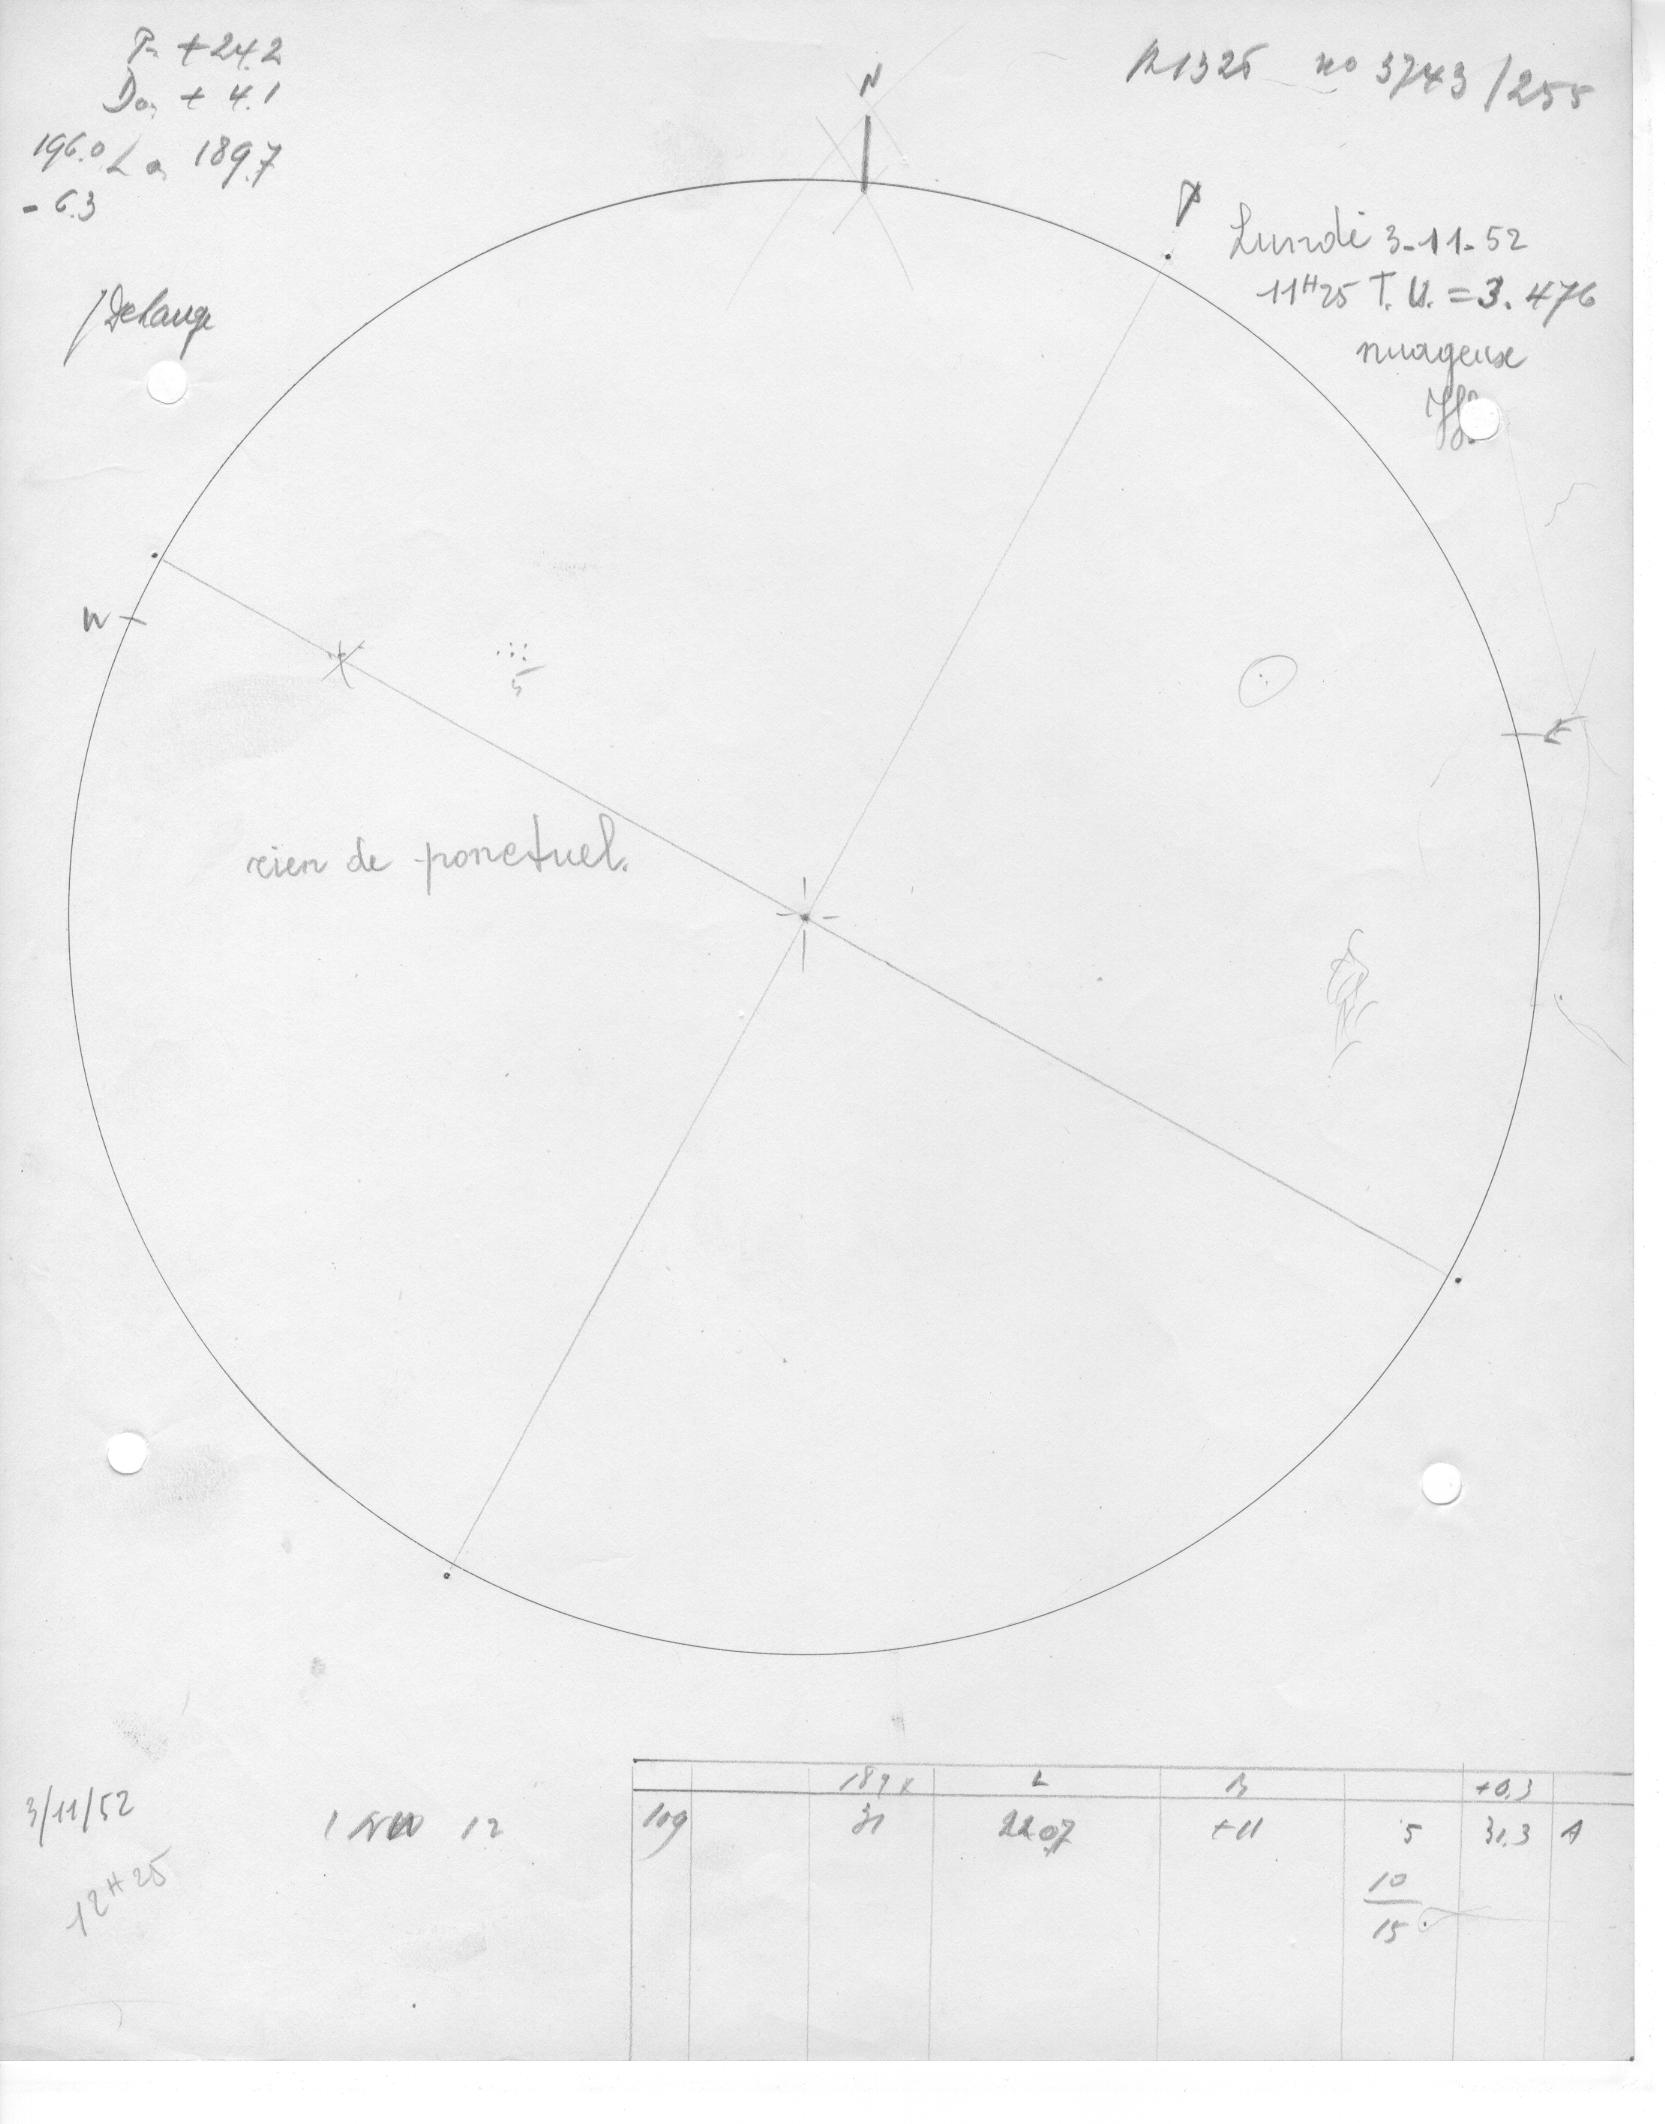 P = +24.2
Do = +4.1
196.0 Lo = 189.7
- 6.3
N
R1325 no 3743/255
P
Lundi 3-11-52
11H25 T.U. = 3.476
nuageuse
JDelange
W
5
E
rien de ponctuel.
L B +0.3
109 31 220,7 +11 5 31.3 A
10
15
3/11/52
1 NW 12
12H25